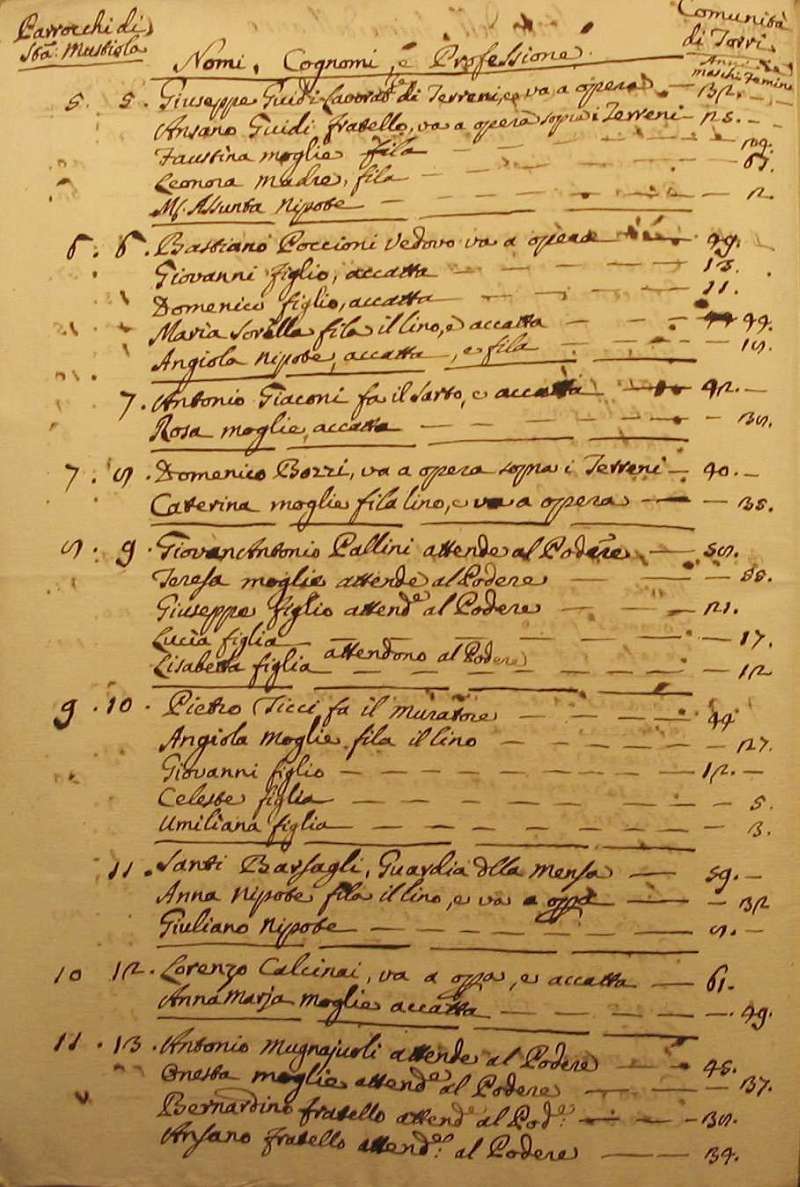 Parrocchi di
Sta: Mustiola
Comunità
di Torri
Nomi, Cognomi, e Professione.
Anni
maschi Femine
5. 5. Giuseppe Guidi Lavorat:e di Terreni, e va a opera — 32. —
Ansano Guidi fratello, va a opera sopra i Terreni — 25. —
Faustina moglie fila
Leonora Madre, fila
M: Assunta Nipote — 2.
6. 6. Bastiano Poccioni Vedovo va a opera — 49. —
Giovanni figlio, accatta — 13.
Domenico figlio, accatta — 11.
Maria Sorella fila il lino, e accatta — 44.
Angiola Nipote, accatta, e fila — 18.
7. Antonio Giaconi fa il Sarto, e accatta — 42. —
Rosa moglie, accatta — 38.
7. 8. Domenico Bozzi, va a opera sopra i Terreni — 40. —
Caterina moglie fila lino, e va a opera — 35.
8. 9. Giovan Antonio Pallini attende al Podere — 58. —
Teresa moglie attende al Podere — 55.
Giuseppe figlio attend:e al Podere — 21.
Lucia figlia — 17.
attendono al Podere
Lisabetta figlia — 12
9. 10. Pietro Ticci fa il Muratore — 44
Angiola Moglie fila il lino — 27.
Giovanni figlio — 12. —
Celeste figlia — 5.
Umiliana figlia — 3.
11. Santi Barsagli, Guardia dlla Mensa — 59. —
Anna Nipote fila il lino, e va a opa — 32
Giuliano Nipote — 8. —
10 12. Lorenzo Calcinai, va a opa, e accatta — 61.
Anna Maria moglie accatta — 49.
11. 13. Antonio Mugnajuoli attende al Podere — 45.
Onesta moglie attend:e al Podere — 37.
Bernardino fratello attend:e al Pod:e — 38.
Ansano fratello attend:e al Podere — 34.